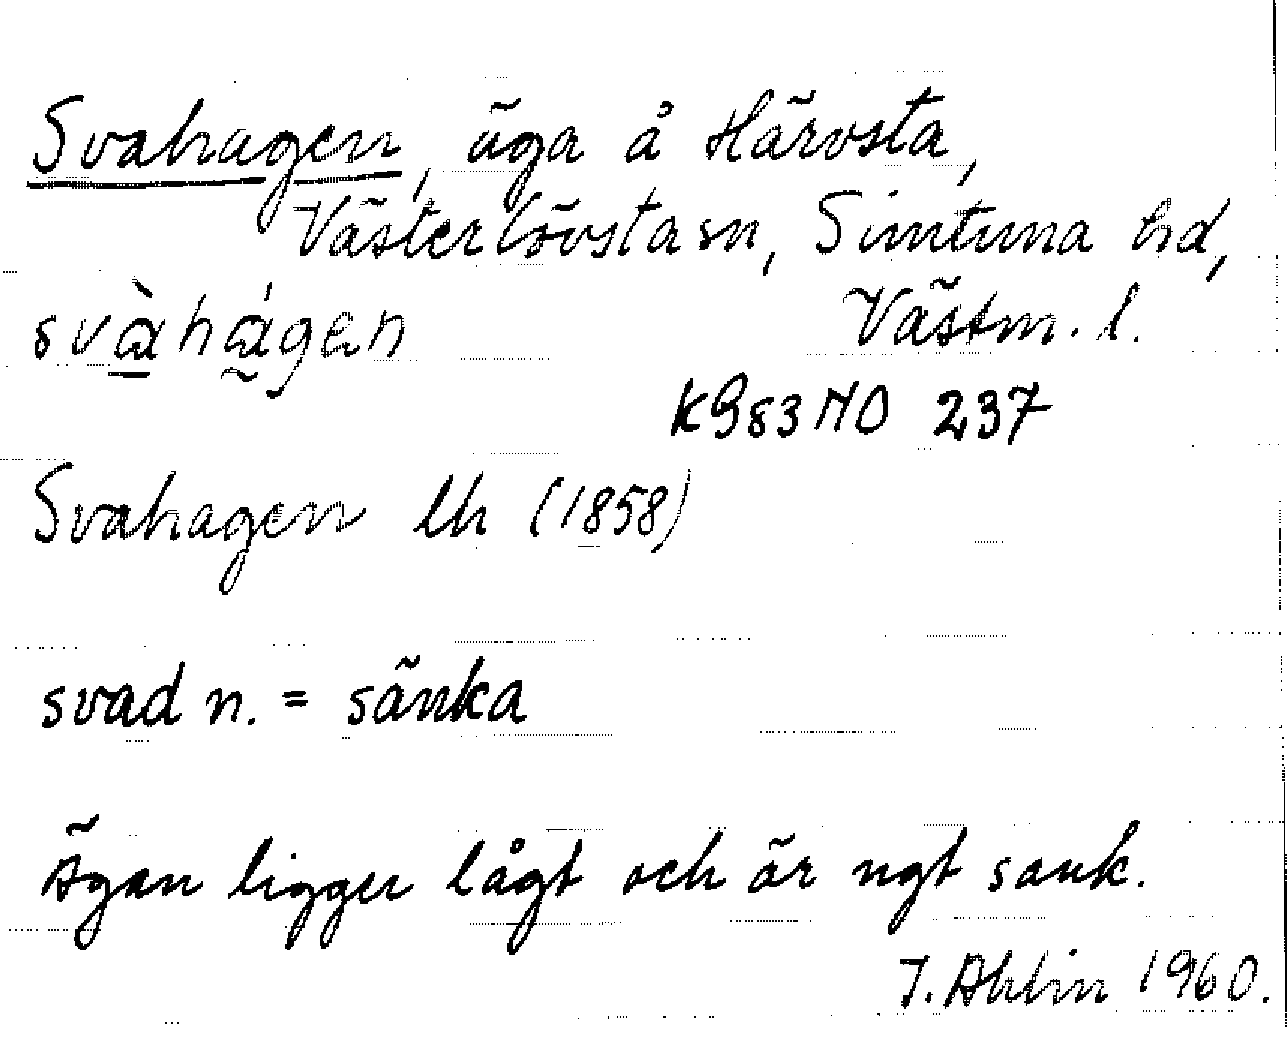 Svahagen, äga å Härvsta,
Västerlövsta sn, Simtuna hd,
svàhágen Västm. l.
K983 NO 237
Svahagen lh (1858)
svad n. = sänka
Ägan ligger lågt och är ngt sank.
J. Ahlin 1960.